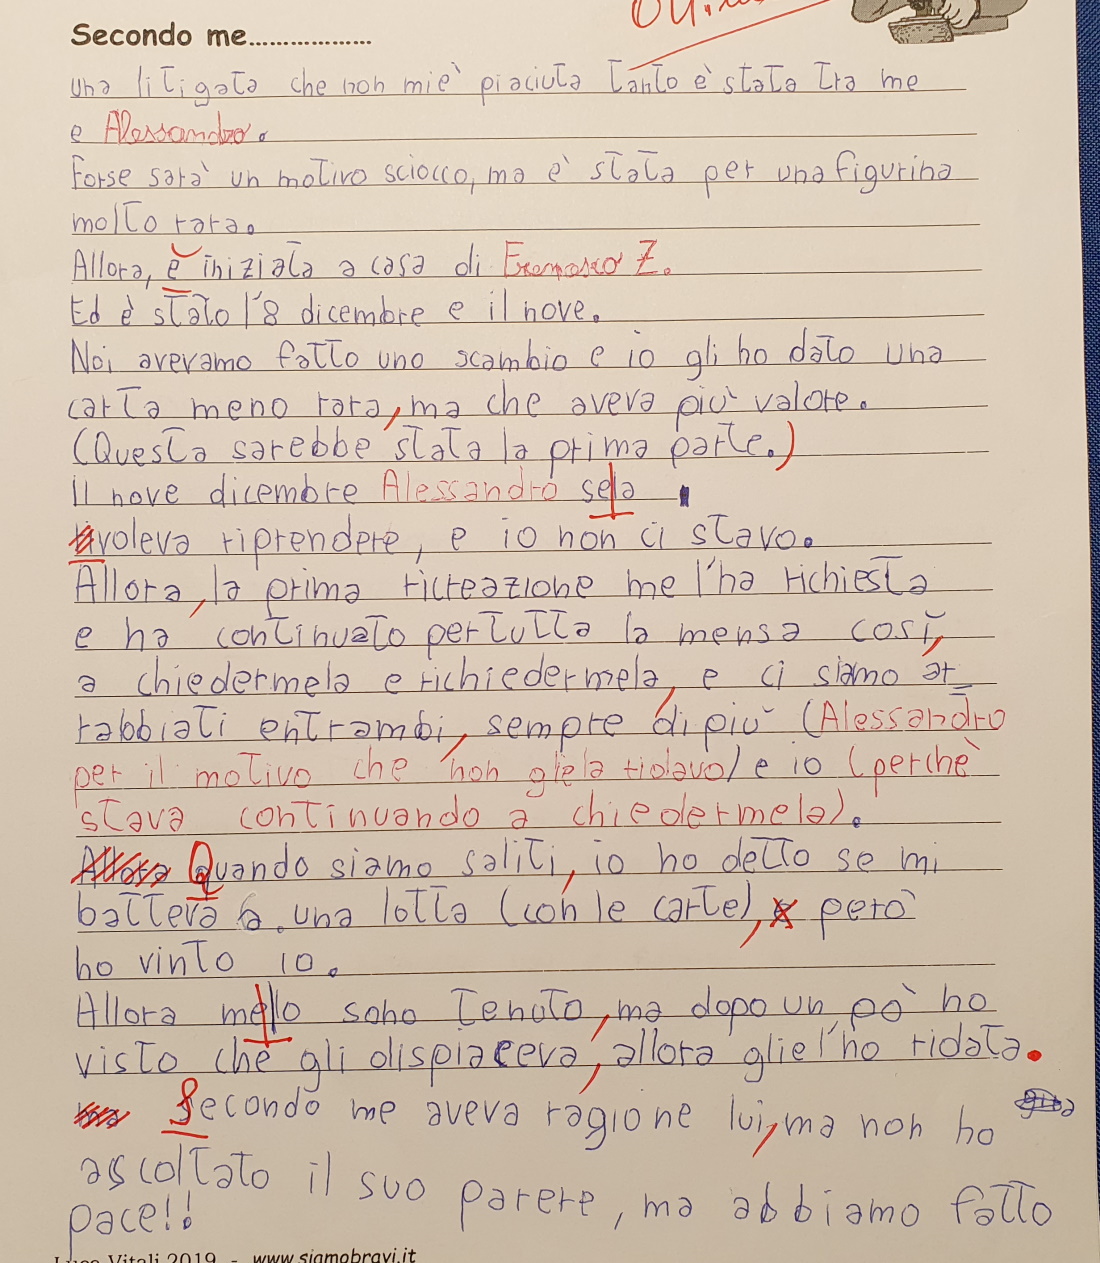 Secondo me..................
una litigata che non miè piaciuta tanto è stata tra me
e Alessandro.
Forse sarà un motivo sciocco, ma è stata per una figurina
molto rara.
Allora, è iniziata a casa di Francesco Z.
Ed è stato l'8 dicembre e il nove.
Noi avevamo fatto uno scambio e io gli ho dato una
carta meno rara, ma che aveva più valore.
(Questa sarebbe stata la prima parte.)
Il nove dicembre Alessandro sela
voleva riprendere, e io non ci stavo.
Allora, la prima ricreazione me l'ha richiesta
e ha continuato pertutta la mensa così,
a chiedermela e richiedermela, e ci siamo ar
rabbiati entrambi, sempre di più (Alessandro
per il motivo che non gliela ridavo) e io (perchè
stava continuando a chiedermela).
Allora Quando siamo saliti, io ho detto se mi
batteva a una lotta (con le carte), e però
ho vinto io.
Allora mello sono tenuto, ma dopo un pò ho
visto che gli dispiaceva, allora gliel'ho ridata.
ma Secondo me aveva ragione lui, ma non ho
ascoltato il suo parere, ma abbiamo fatto
pace!!
Luca Vitali 2019 - www.siamobravi.it